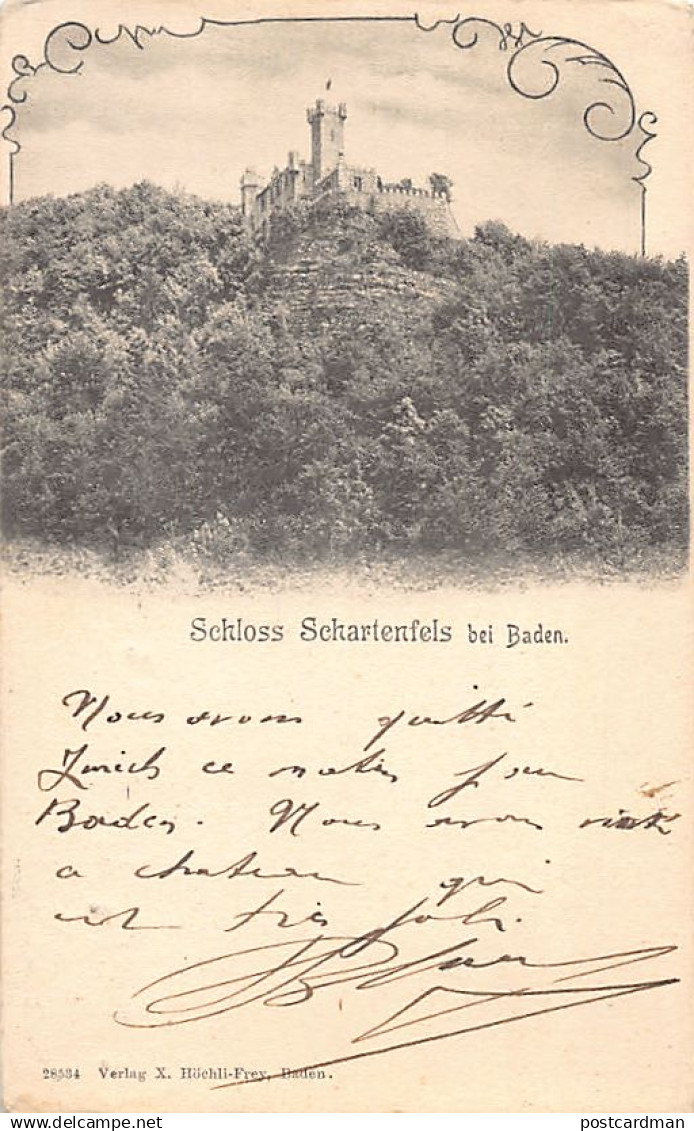 Schloss Schartenfels bei Baden.
Nous avons quitté
Zurich ce matin pour
Baden. Nous avons visité
ce chateau qui
est très joli.
28534 Verlag X. Höchli-Frey, Baden.
delcampe.net
postcardman